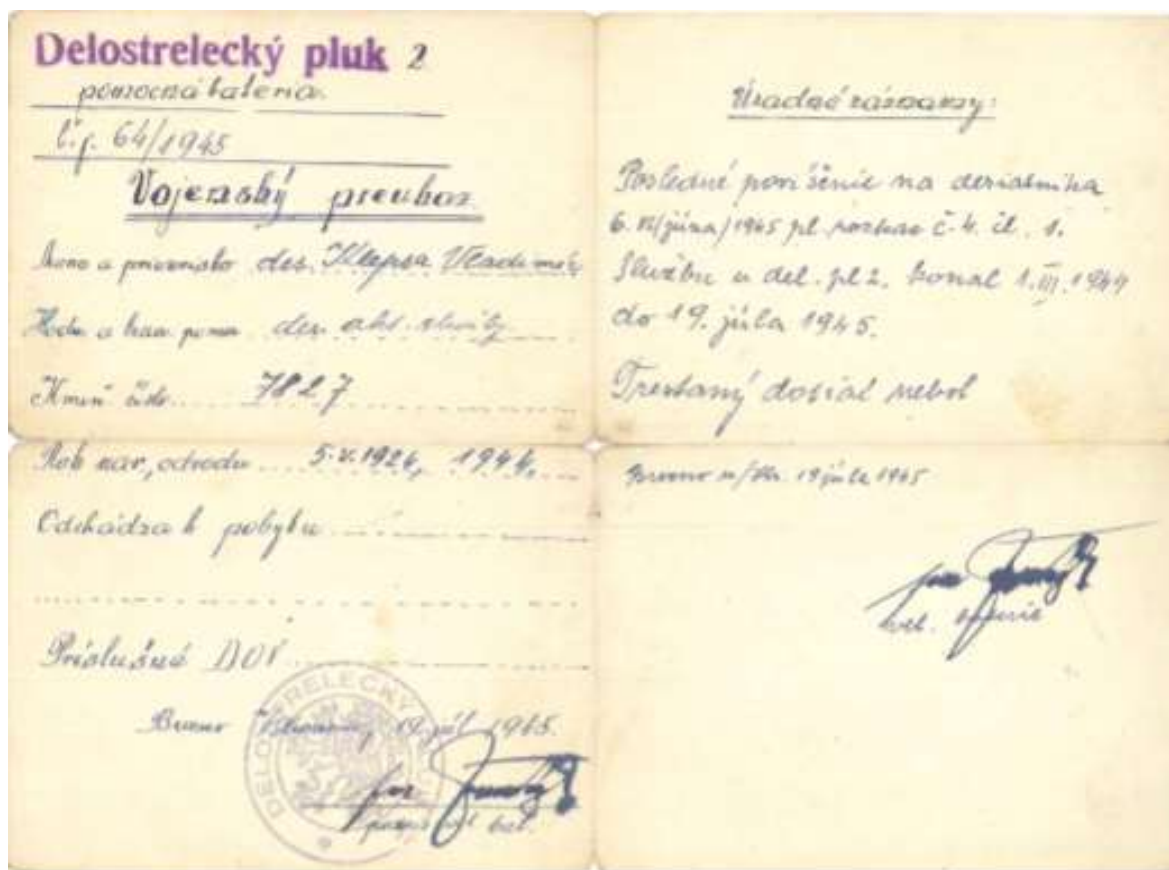 Delostrelecký pluk 2
pomocná batéria
č.j. 64/1945
Vojenský preukaz
Meno a priezvisko des. Klapsa Vladimír
Hodn. a kmeň. pomer des. akt. služby
Kmeň. číslo 7827
Rok nar., odvodu 5.V.1924, 1944.
Odchádza k pobytu
Príslušné DOV
Brezno 19. júl 1945.
DELOSTRELECKÝ
Úradné záznamy:
Posledné povíšenie na desiatnika
6. VI/júna/1945 pl. rozkaz č. 4. čl. 1.
Službu u del. pl 2. konal 1.III.1944
do 19. júla 1945.
Trestaný dosiaľ nebol
19 júla 1945
vel. batérie